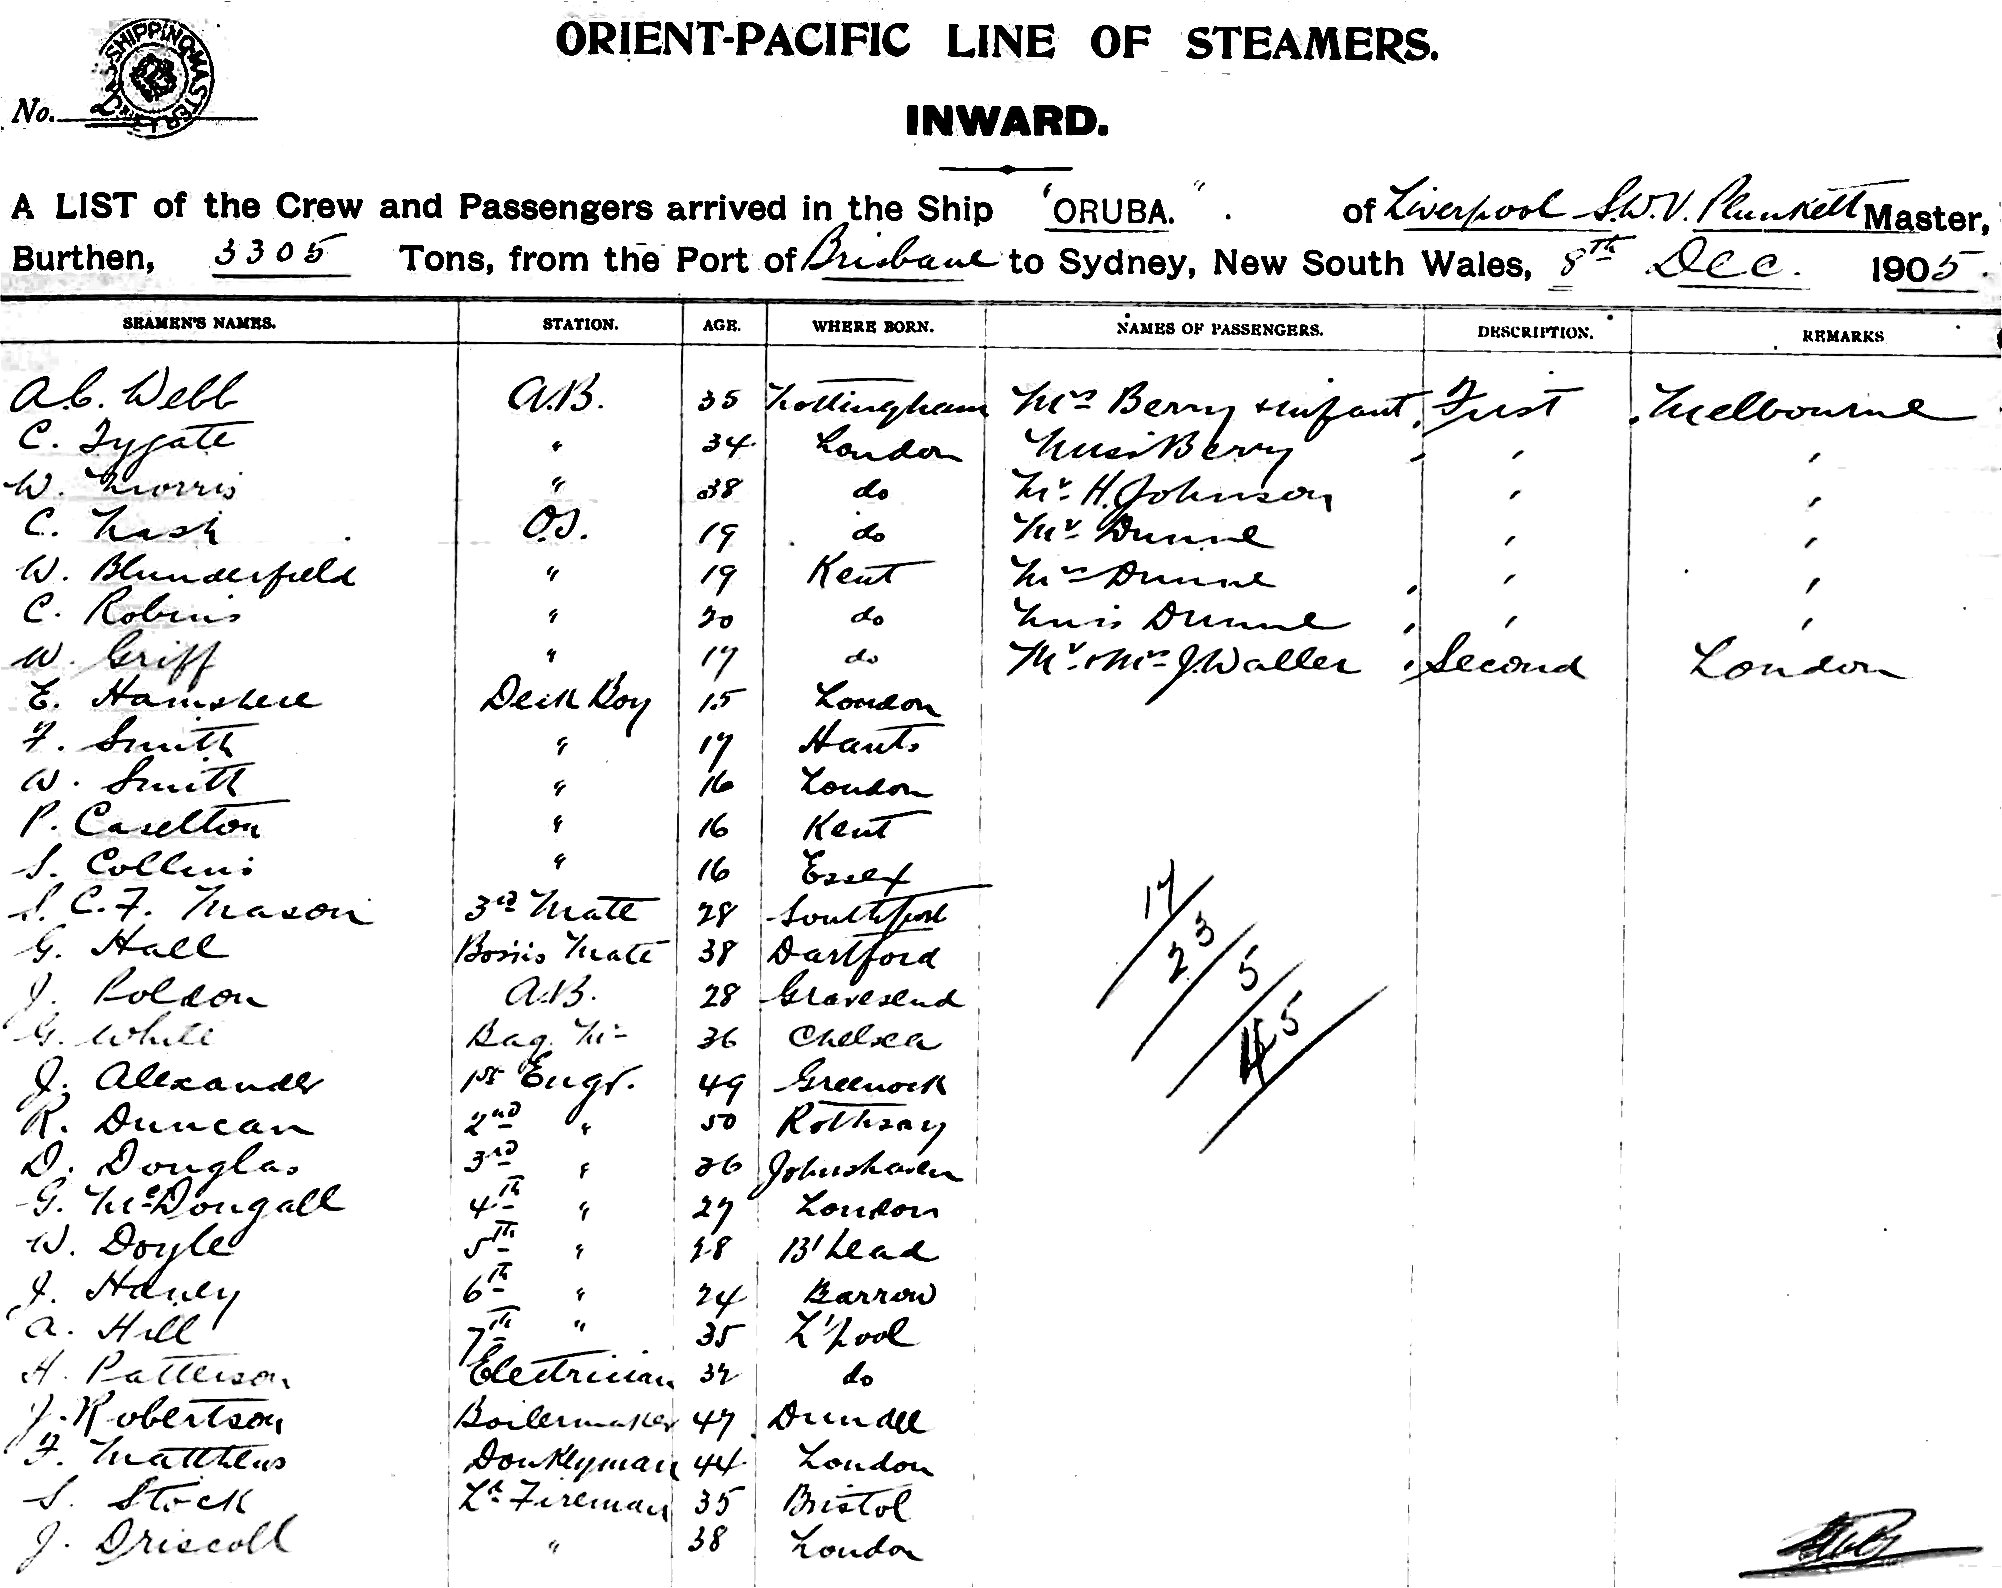 SHIPPING MASTER
ORIENT-PACIFIC LINE OF STEAMERS.
No.
INWARD.
A LIST of the Crew and Passengers arrived in the Ship "ORUBA." of Liverpool S.W.V. Plunkett Master,
Burthen, 3305 Tons, from the Port of Brisbane to Sydney, New South Wales, 8th Dec. 1905.
SEAMEN'S NAMES. STATION. AGE. WHERE BORN. NAMES OF PASSENGERS. DESCRIPTION. REMARKS
A.C. Webb A.B. 35 Nottingham Mrs Berry & infant First Melbourne
C. Tygate " 34 London Miss Berry " "
W. Morris " 38 do Mr. H. Johnson " "
C. Nash O.S. 19 do Mr. Dunne " "
W. Blunderfield " 19 Kent Mrs Dunne " "
C. Robins " 20 do Miss Dunne " "
W. Griff " 17 do Mr. & Mrs J. Waller Second London
E. Hamshere Deck Boy 15 London
F. Smith " 17 Hants
W. Smith " 16 London
P. Caselton " 16 Kent
S. Collins " 16 Essex
S. C. F. Mason 3rd Mate 28 Southport
G. Hall Bosns Mate 38 Dartford
J. Poldon A.B. 28 Gravesend
G. White Bag. Mr 36 Chelsea
J. Alexander 1st Engr. 49 Greenock
R. Duncan 2nd " 50 Rothsay
D. Douglas 3rd " 36 Johnshaven
G. McDougall 4th " 27 London
W. Doyle 5th " 28 B'head
J. Haney 6th " 24 Barrow
A. Hill 7th " 35 L'pool
H. Patterson Electrician 32 do
J. Robertson Boilermaker 47 Dundee
F. Matthews Donkeyman 44 London
S. Stock Ldg Fireman 35 Bristol
J. Driscoll " 38 London
17/
23/
5/
45/